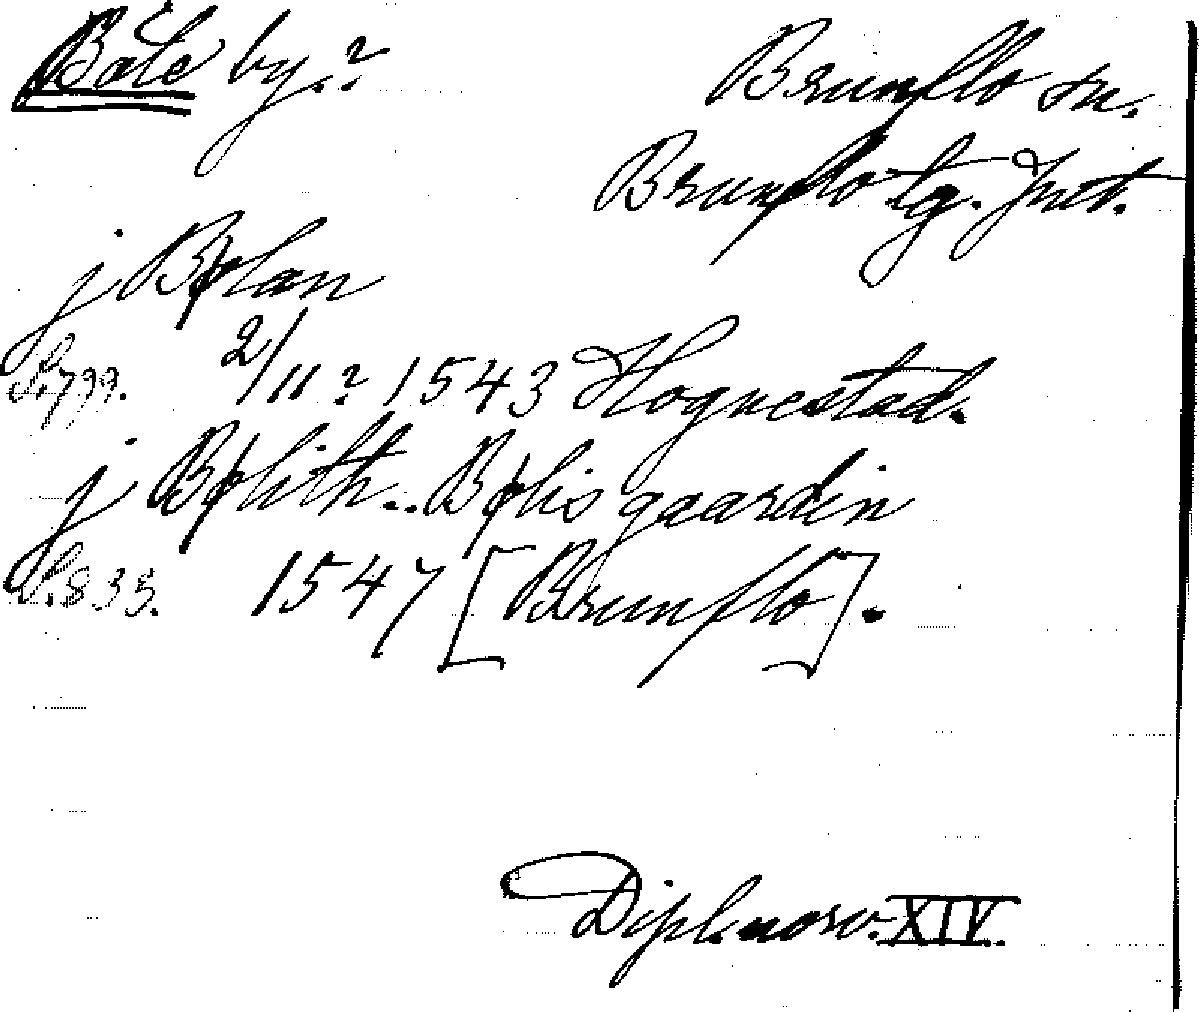 Båle by.?
Brunflo sn.
Brunflo tg. Jmt.
j Bølan
S. 799. 2/11? 1543 Hognestad.
j Bølith.. Bølis gaardin
S. 835. 1547 [Brunflo].
Dipl. norv. XIV.